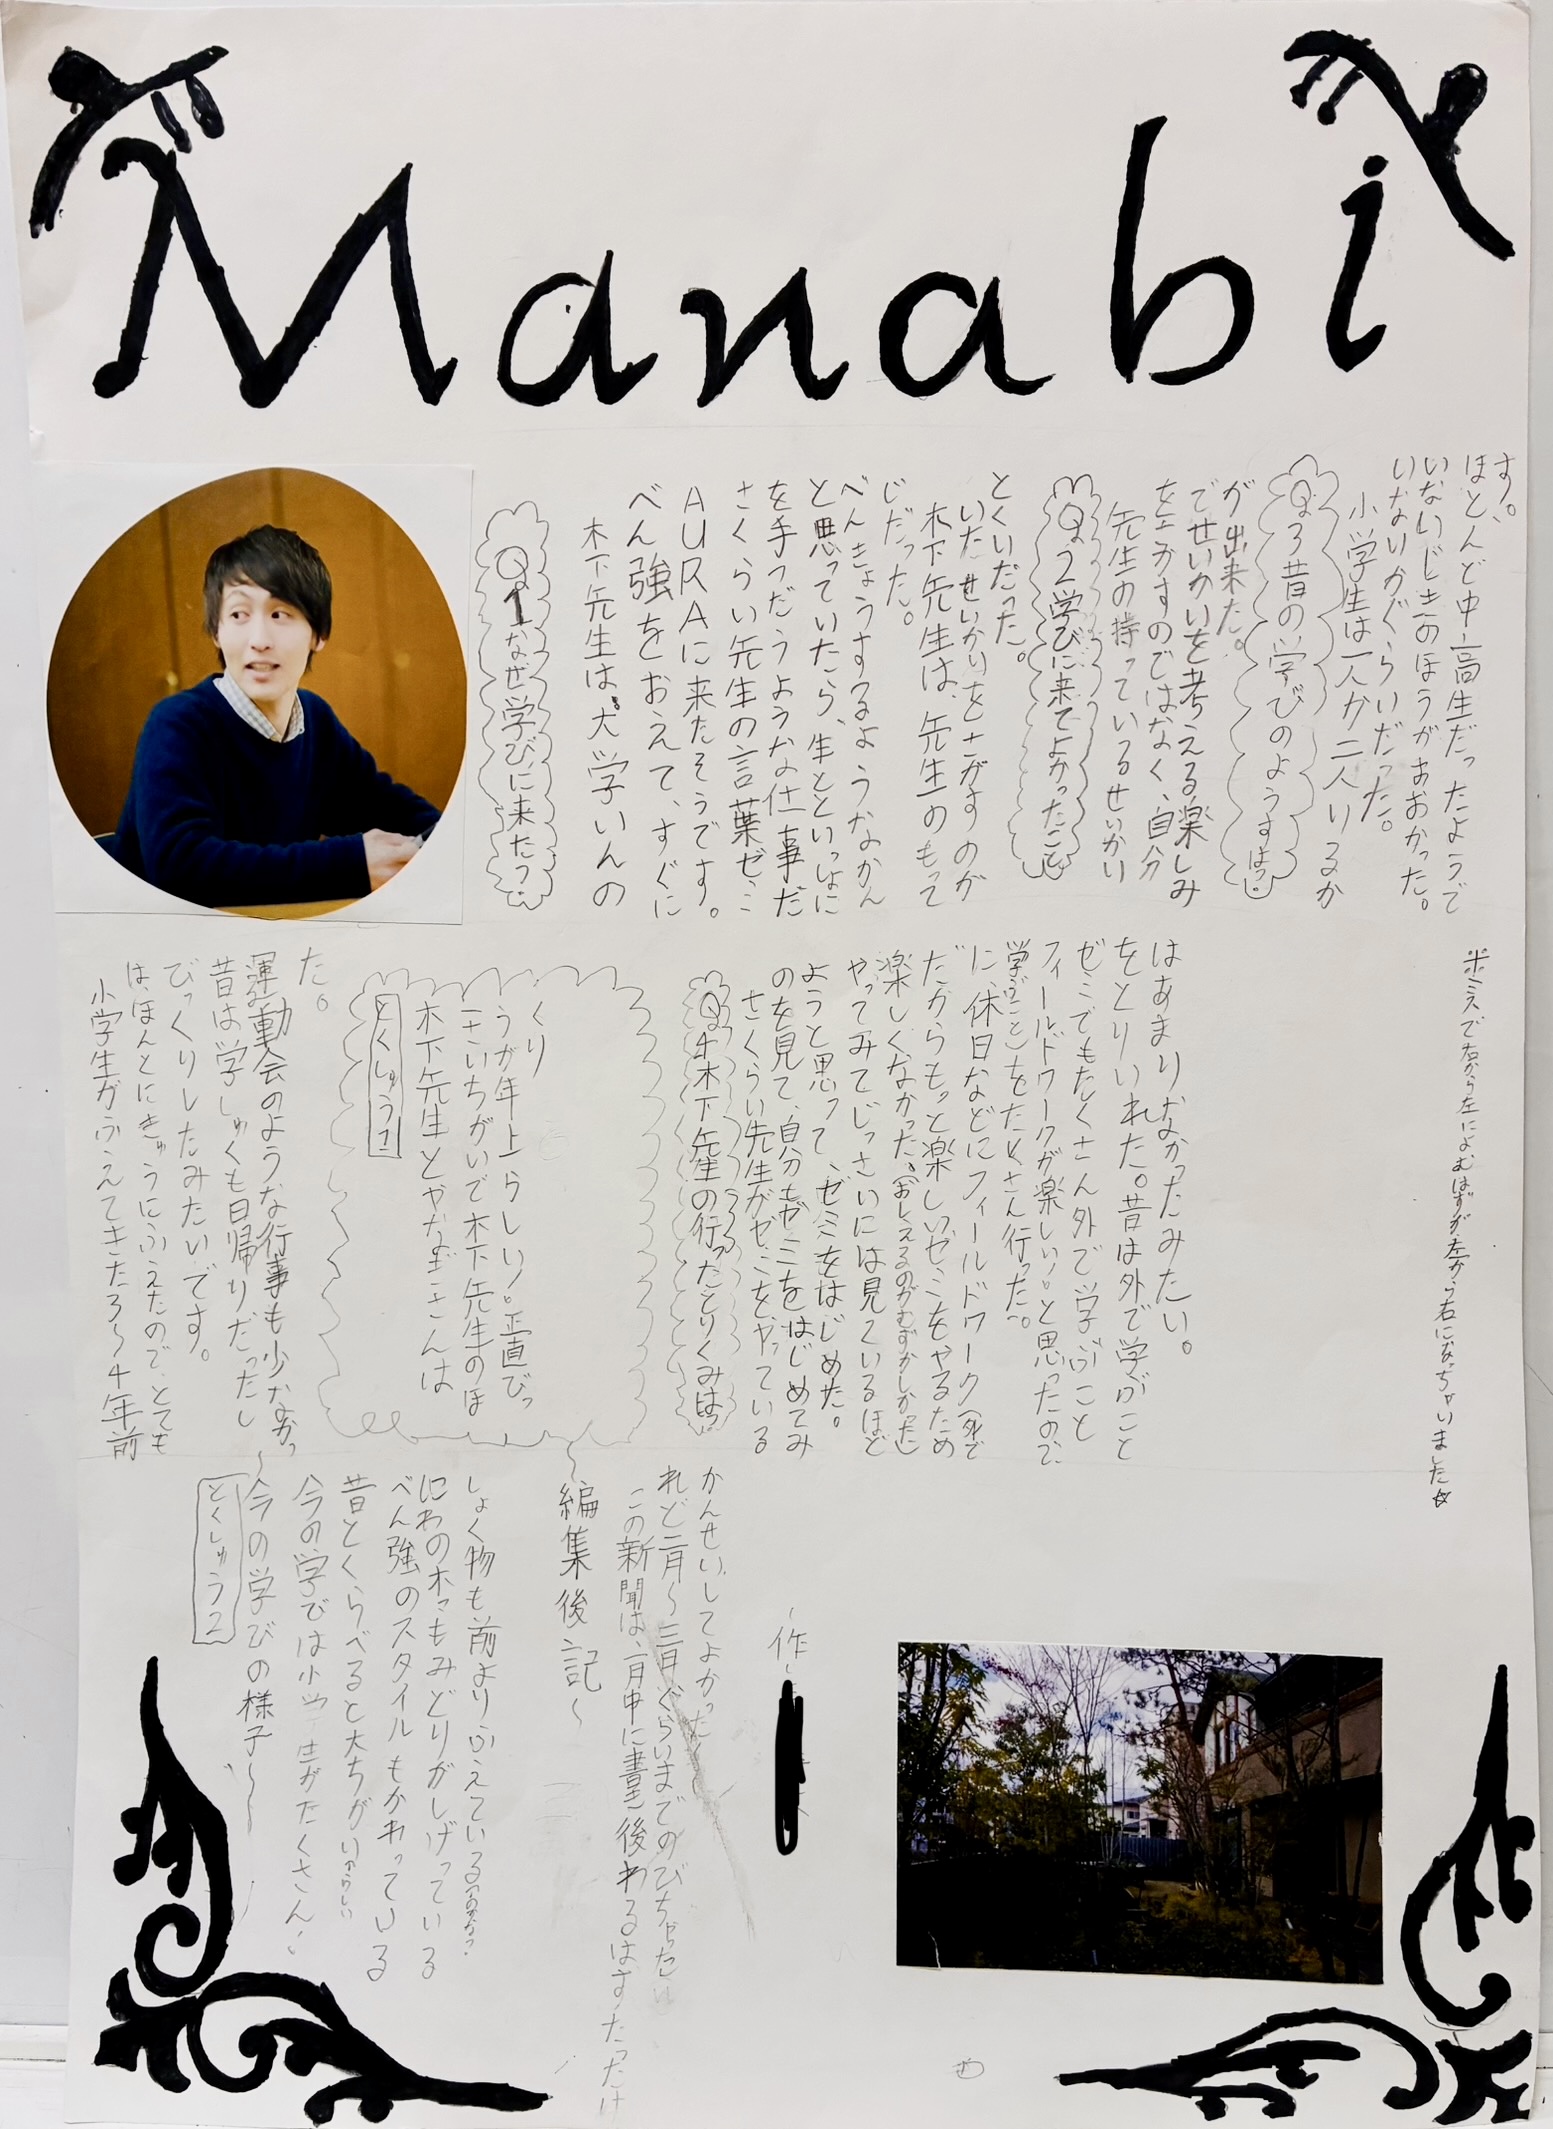 Manabi
Q1なぜ学びに来た?
木下先生は、大学いんの
べん強をおえて、すぐに
AURAに来たそうです。
さくらい先生の言葉ゼミ
を手つだうような仕事だ
と思っていたら、生とといっしょに
べんきょうするようなかん
じだった。
木下先生は、先生のもって
いたせいかいをさがすのが
とくいだった。
Q2学びに来てよかったこと
先生の持っているせいかい
をさがすのではなく、自分
でせいかいを考える楽しみ
が出来た。
Q3昔の学びのようすは?
小学生は一人か二人いるか
いないかぐらいだった。
いないじきのほうがおおかった。
ほとんど中高生だったようで
す。
小学生がふえてきた3〜4年前
は、ほんとにきゅうにふえたので、とても
びっくりしたみたいです。
昔は学しゅくも日帰りだったし
運動会のような行事も少なかっ
た。
とくしゅう1
木下先生とやなぎさんは
一さいちがいで木下先生のほ
うが年上らしい!正直びっ
くり
Q4木下先生の行ったとりくみは?
さくらい先生がゼミをやっている
のを見て、自分もゼミをはじめてみ
ようと思って、ゼミをはじめた。
やってみてじっさいには見ているほど
楽しくなかった。(おしえるのがむずかしかった)
だからもっと楽しいゼミをやるため
に、休日などにフィールドワーク(外で
学ぶこと)をたくさん行った。
フィールドワークが楽しい!と思ったので、
ゼミでもたくさん外で学ぶこと
をとりいれた。昔は外で学ぶこと
はあまりなかったみたい。
※ミスで右から左によむはずが左から右になっちゃいました☆
とくしゅう2
〜今の学びの様子〜
今の学びは小学生がたくさん!
昔とくらべると大ちがいらしい
べん強のスタイルもかわっている
にわの木々もみどりがしげっている
しょく物も前よりふえている
〜編集後記〜
この新聞は、一月中に書き後わるはずだったけ
れど二月〜三月ぐらいまでのびちゃった
かんせいしてよかった〜
作